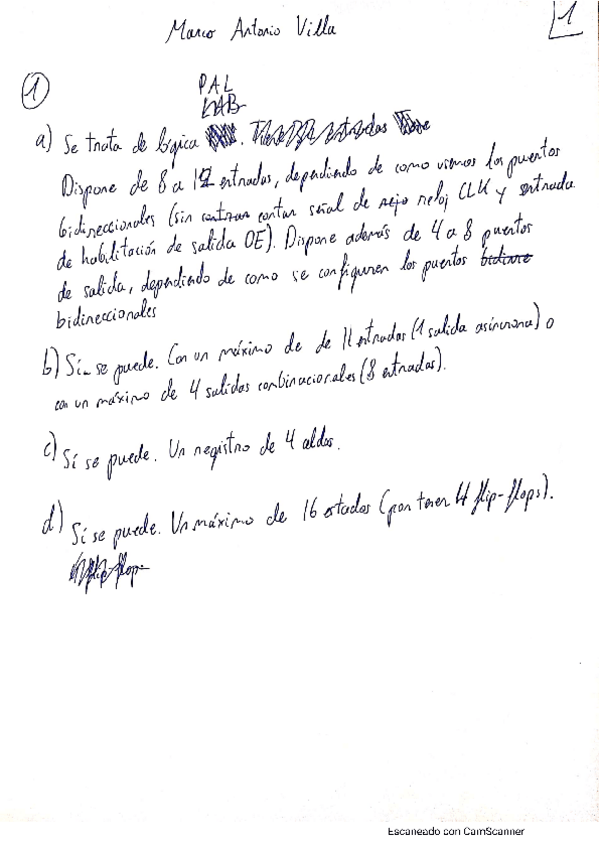 Marco Antonio Villa
1
1
PAL
LAB
a) Se trata de lógica . entradas
Dispone de 8 a 12 entradas, dependiendo de como usemos los puertos
bidireccionales (sin contar señal de reloj CLK y entrada
de habilitación de salida OE). Dispone además de 4 a 8 puertos
de salida, dependiendo de como se configuren los puertos
bidireccionales
b) Sí se puede. Con un máximo de de 11 entradas (1 salida asíncrona) o
con un máximo de 4 salidas combinacionales (8 entradas).
c) Sí se puede. Un registro de 4 aldos.
d) Sí se puede. Un máximo de 16 estados (por tener 4 flip-flops).
flip-flops
Escaneado con CamScanner